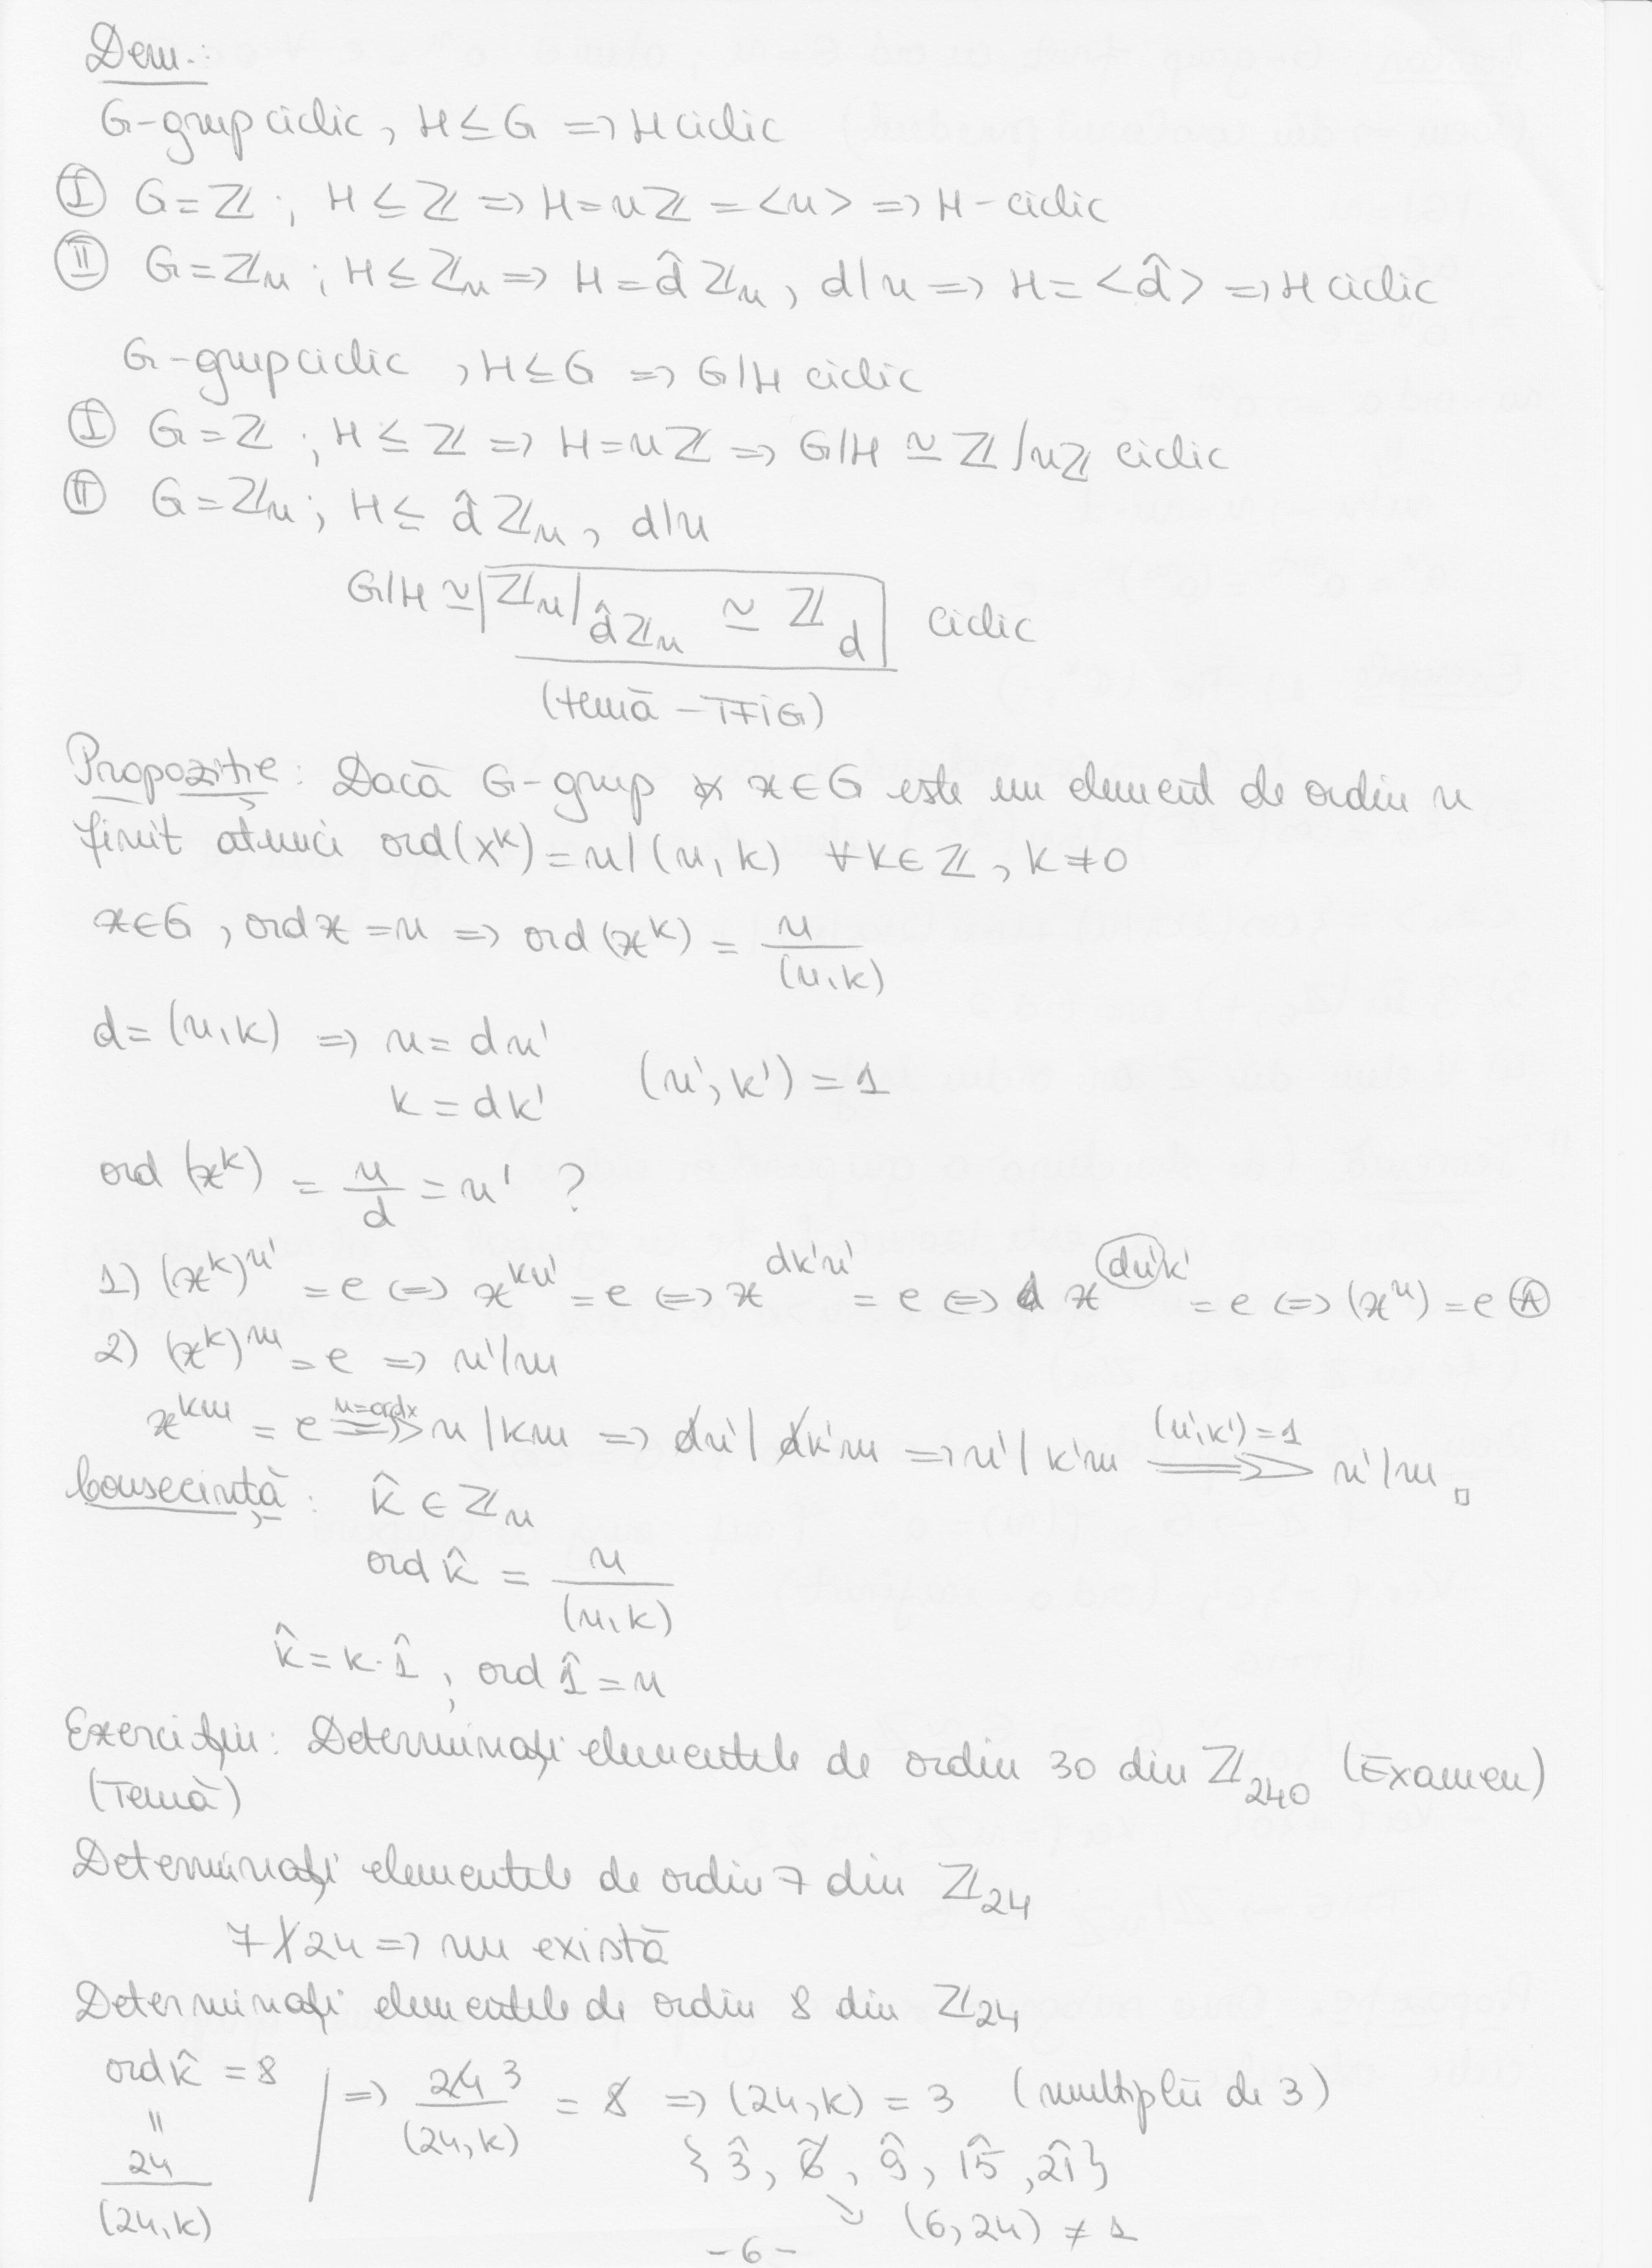 Dem.:
G-grup ciclic, H ≤ G => H ciclic
Ⓘ G = ℤ ; H ≤ ℤ => H = nℤ = <n> => H - ciclic
Ⓘ︎Ⓘ G = ℤn ; H ≤ ℤn => H = d̂ ℤn, d|n => H = <d̂> => H ciclic
G-grup ciclic, H ≤ G => G/H ciclic
Ⓘ G = ℤ ; H ≤ ℤ => H = nℤ => G/H ≃ ℤ/nℤ ciclic
Ⓘ︎Ⓘ G = ℤn ; H ≤ d̂ ℤn, d|n
G/H ≃ ℤn/d̂ℤn ≃ ℤd ciclic
(temă - TFIG)
Propoziție: Dacă G-grup x ∈ G este un element de ordin n
finit atunci ord(x^k) = n/(n,k) ∀k ∈ ℤ, k ≠ 0
x ∈ G, ord x = n => ord(x^k) = n/(n,k)
d = (n,k) => n = dn'
k = dk' (n', k') = 1
ord (x^k) = n/d = n' ?
1) (x^k)^n' = e <=> x^kn' = e <=> x^dk'n' = e <=> x^dn'k' = e <=> (x^n) = e Ⓐ
2) (x^k)^m = e => n'/m
x^km = e =n=ordx=> n/km => dn'/dk'm => n'/k'm =(n',k')=1=> n'/m □
Consecință: k̂ ∈ ℤn
ord k̂ = n/(n,k)
k̂ = k·1̂, ord 1̂ = n
Exercițiu: Determinați elementele de ordin 30 din ℤ240 (Examen)
(Temă)
Determinați elementele de ordin 7 din ℤ24
7 ∤ 24 => nu există
Determinați elementele de ordin 8 din ℤ24
ord k̂ = 8 = 24/(24,k) => 24 3/(24,k) = 8 => (24,k) = 3 (multiplii de 3)
{3̂, 6̂, 9̂, 15̂, 21̂}
↘ (6,24) ≠ 1
-6-